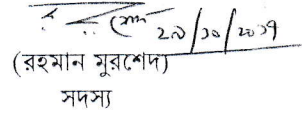 ২৯/১০/২০১৭
(রহমান মুরশেদ)
সদস্য